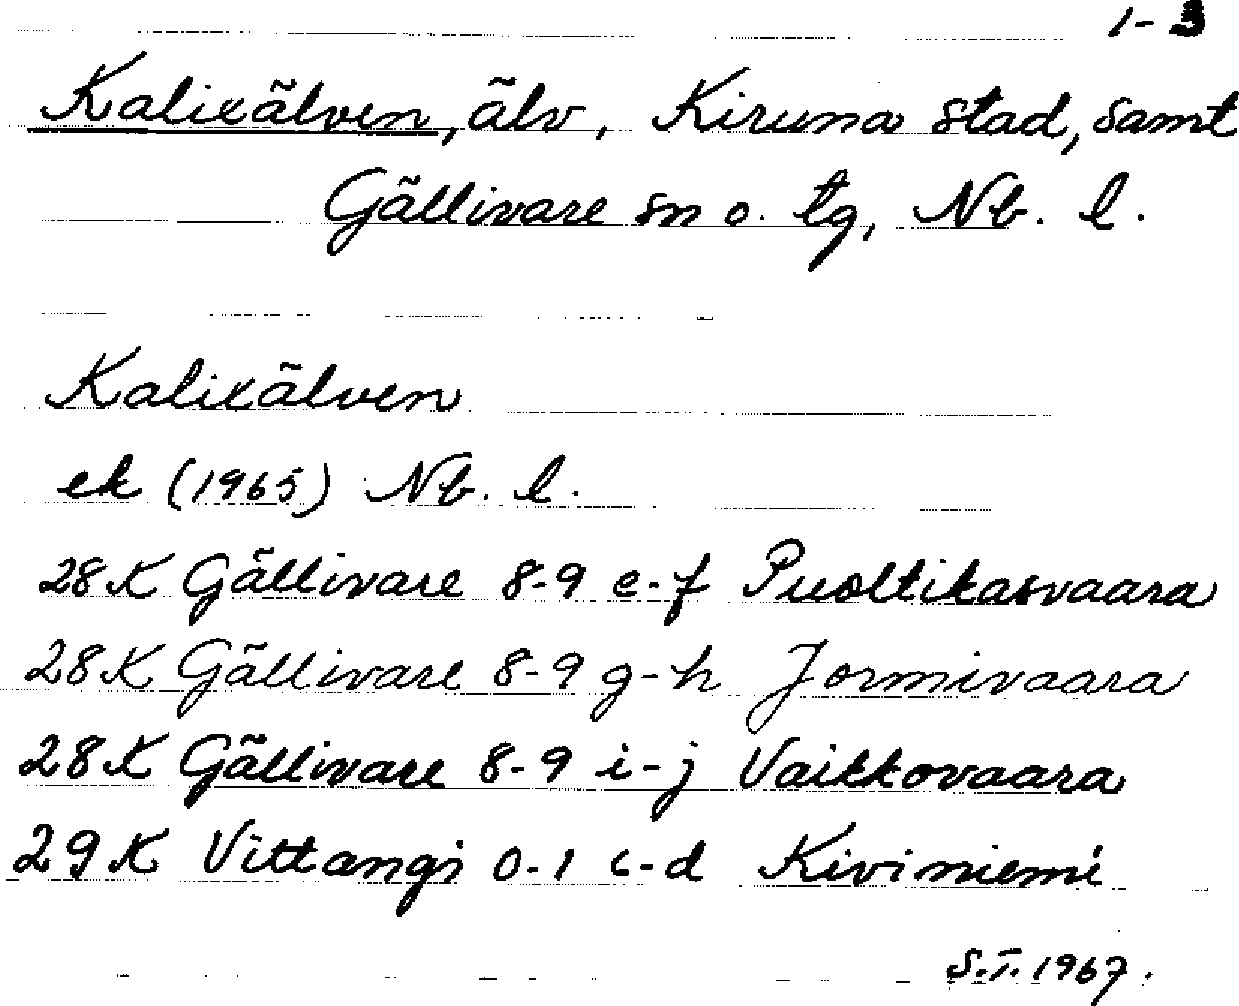 1-3
Kalixälven, älv, Kiruna stad, samt
Gällivare sn o. tg, Nb. l.
Kalixälven
ek (1965) Nb. l.
28K Gällivare 8-9 e-f Puoltikasvaara
28K Gällivare 8-9 g-h Jormivaara
28K Gällivare 8-9 i-j Vaikkovaara
29K Vittangi 0-1 c-d Kiviniemi
S.T. 1967.